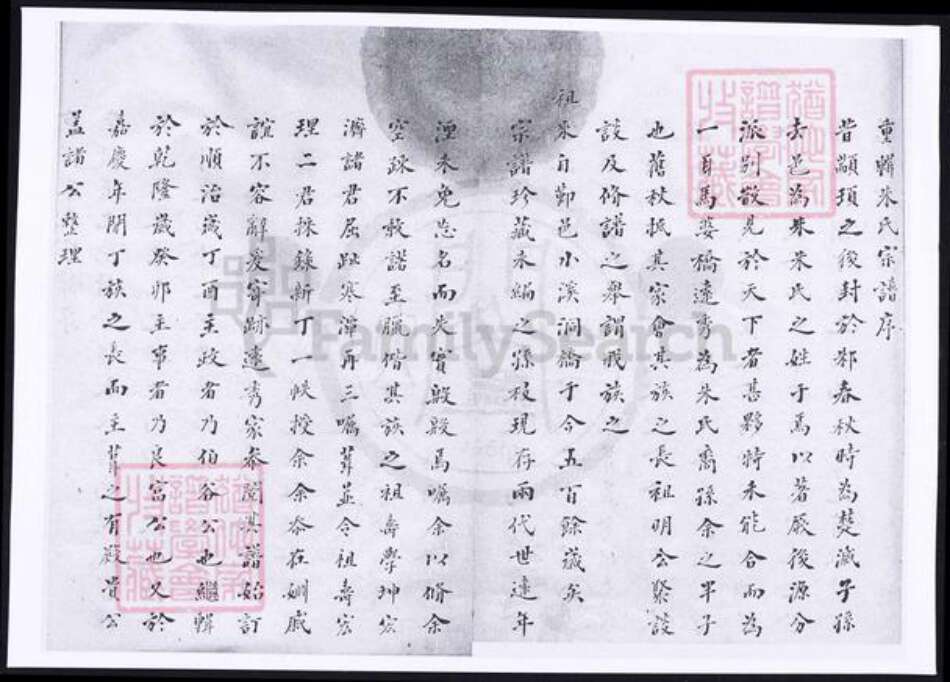 重輯朱氏宗譜序
昔顓頊之後封於邾春秋時為楚滅子孫
去邑為朱朱氏之姓于焉以著厥後源分
派別散見於天下者甚夥特未能合而為
一自馬婆橋遠秀為朱氏裔孫余之半子
也舊秋抵其家會其族之長祖明公聚談
談及修譜之舉謂我族之
祖來自鄞邑小溪洞橋于今五百餘歲矣
宗譜珍藏永綿之孫枝現存兩代世遠年
湮未免忘名而失實殷殷焉囑余以修余
空疎不敢諾至臘偕其族之祖壽學坤宏
濟諸君屈趾寒漳再三囑葺並令祖壽宏
理二君採錄新丁一帙授余余忝在姻戚
誼不容辭爰寄跡遠秀家參閱其譜始訂
於順治歲丁酉主政者乃伯谷公也繼輯
於乾隆歲癸卯主事者乃良富公也又於
嘉慶年間丁族之長而主葺之有殿貴公
盖諸公整理
FamilySearch